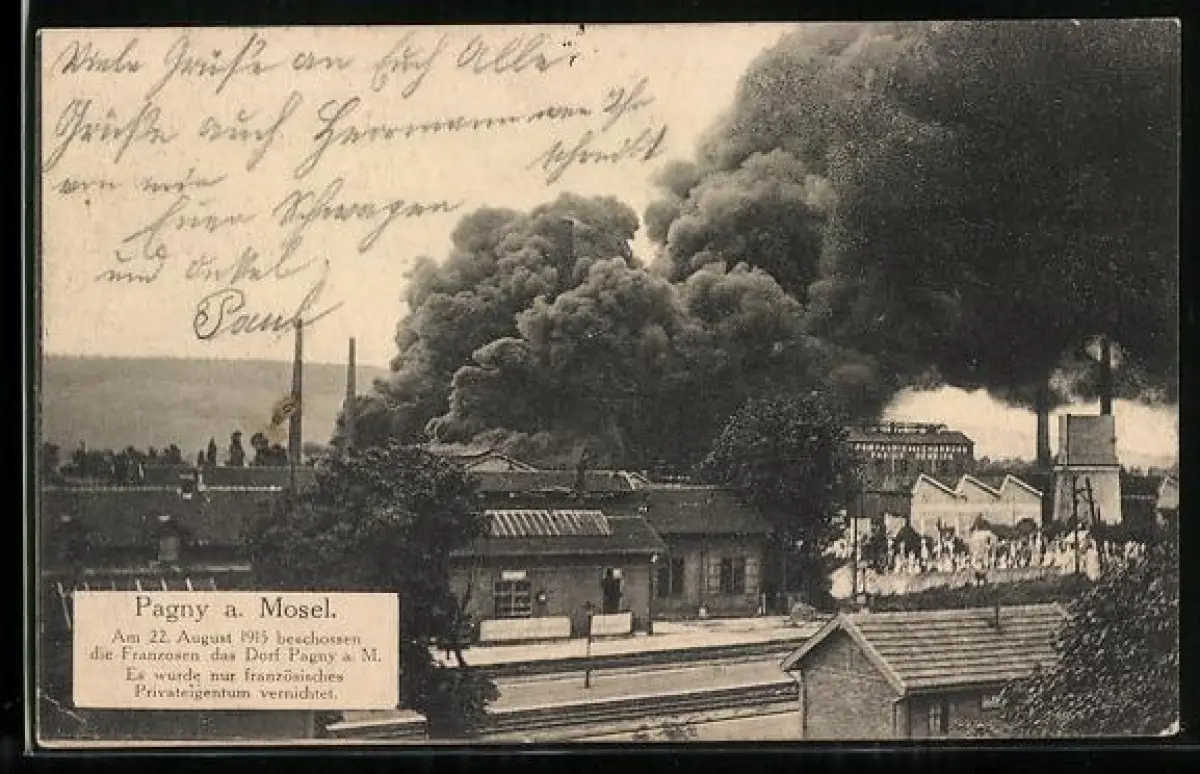 Viele Grüße an Euch Alle.
Grüße auch Herrmann wen Ihr
schreibt
von mir
Euer Schwager
und Onkel
Paul
Pagny a. Mosel.
Am 22. August 1915 beschossen
die Franzosen das Dorf Pagny a. M.
Es wurde nur französisches
Privateigentum vernichtet.